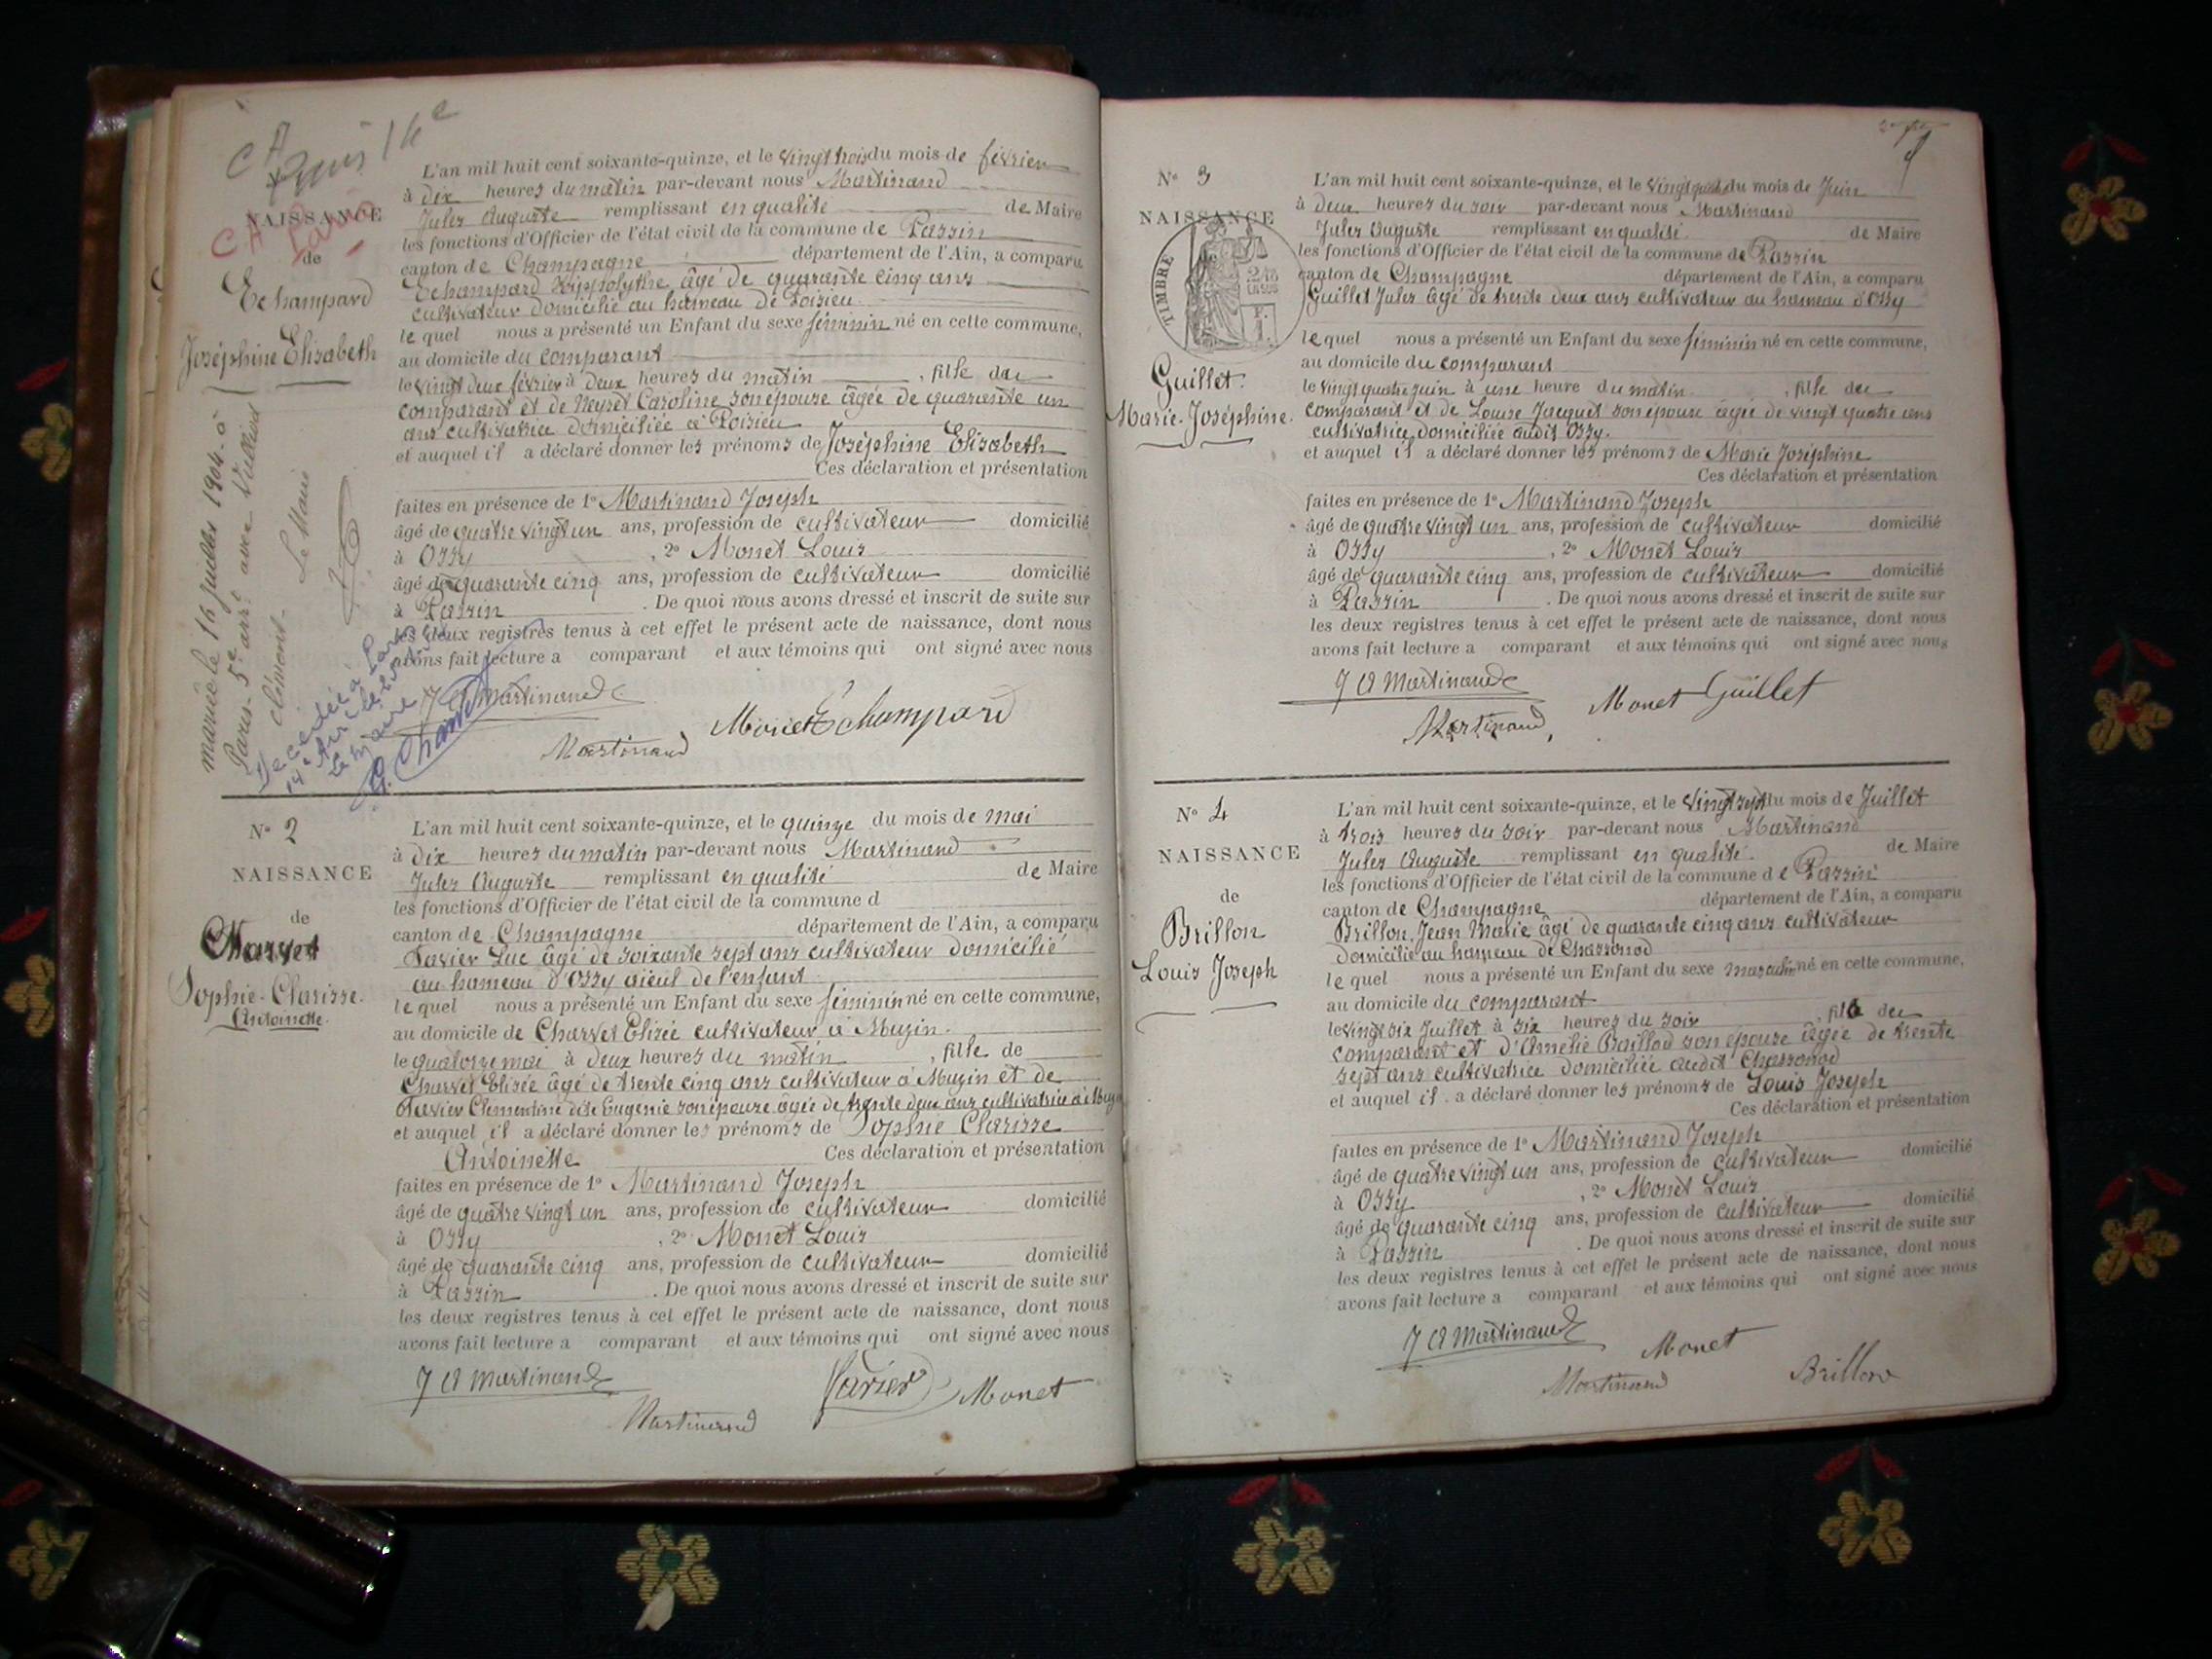 C A
Paris 14e
C A Paris
NAISSANCE
de
Echampard
Joséphine Elisabeth
mariée le 16 juillet 1904 à
Paris - 5e arrt avec Vuilliod
Clément -
Le Maire
Décédée à Paris
14e Arr le
Le Maire
L'an mil huit cent soixante-quinze, et le vingt trois du mois de février
à dix heures du matin par-devant nous Martinand
Jules Auguste remplissant en qualité de Maire
les fonctions d'Officier de l'état civil de la commune de Passin
canton de Champagne département de l'Ain, a comparu
Echampard Hippolythe âgé de quarante cinq ans
cultivateur domicilié au hameau de Poisieu
le quel nous a présenté un Enfant du sexe féminin né en cette commune,
au domicile du comparant
le vingt deux février à deux heures du matin , fille du
comparant et de Neyret Caroline son épouse âgée de quarante un
ans cultivatrice domiciliée à Poisieu
et auquel il a déclaré donner les prénoms de Joséphine Elisabeth
Ces déclaration et présentation
faites en présence de 1º Martinand Joseph
âgé de quatre vingt un ans, profession de cultivateur domicilié
à Ossy , 2º Monet Louis
âgé de quarante cinq ans, profession de cultivateur domicilié
à Passin . De quoi nous avons dressé et inscrit de suite sur
les deux registres tenus à cet effet le présent acte de naissance, dont nous
avons fait lecture a comparant et aux témoins qui ont signé avec nous
J A Martinand
Martinand Monet Echampard
Nº 2
NAISSANCE
de
Charvet
Sophie-Clarisse-
Antoinette.
L'an mil huit cent soixante-quinze, et le quinze du mois de mai
à dix heures du matin par-devant nous Martinand
Jules Auguste remplissant en qualité de Maire
les fonctions d'Officier de l'état civil de la commune d
canton de Champagne département de l'Ain, a comparu
Tavier Luc âgé de soixante sept ans cultivateur domicilié
au hameau d'Ossy aieul de l'enfant
le quel nous a présenté un Enfant du sexe féminin né en cette commune,
au domicile de Charvet Elisée cultivateur à Muzin.
le quatorze mai à deux heures du matin , fille de
Charvet Elisée âgé de trente cinq ans cultivateur à Muzin et de
Tavier Clementine dite Eugenie son épouse âgée de trente deux ans cultivatrice à Muzin
et auquel il a déclaré donner les prénoms de Sophie Clarisse
Antoinette Ces déclaration et présentation
faites en présence de 1º Martinand Joseph
âgé de quatre vingt un ans, profession de cultivateur domicilié
à Ossy , 2º Monet Louis
âgé de quarante cinq ans, profession de cultivateur domicilié
à Passin . De quoi nous avons dressé et inscrit de suite sur
les deux registres tenus à cet effet le présent acte de naissance, dont nous
avons fait lecture a comparant et aux témoins qui ont signé avec nous
J A Martinand
Martinand Tavier Monet
Nº 3
NAISSANCE
TIMBRE
Guillet
Marie-Joséphine.
L'an mil huit cent soixante-quinze, et le vingt quatre du mois de Juin
à deux heures du soir par-devant nous Martinand
Jules Auguste remplissant en qualité de Maire
les fonctions d'Officier de l'état civil de la commune de Passin
canton de Champagne département de l'Ain, a comparu
Guillet Jules âgé de trente deux ans cultivateur au hameau d'Ossy
le quel nous a présenté un Enfant du sexe féminin né en cette commune,
au domicile du comparant
le vingt quatre juin à une heure du matin , fille du
comparant et de Louise Jacquet son épouse âgée de vingt quatre ans
cultivatrice domiciliée audit Ossy.
et auquel il a déclaré donner les prénoms de Marie Joséphine
Ces déclaration et présentation
faites en présence de 1º Martinand Joseph
âgé de quatre vingt un ans, profession de cultivateur domicilié
à Ossy , 2º Monet Louis
âgé de quarante cinq ans, profession de cultivateur domicilié
à Passin . De quoi nous avons dressé et inscrit de suite sur
les deux registres tenus à cet effet le présent acte de naissance, dont nous
avons fait lecture a comparant et aux témoins qui ont signé avec nous
J A Martinand
Martinand Monet Guillet
Nº 4
NAISSANCE
de
Brillon
Louis Joseph
L'an mil huit cent soixante-quinze, et le vingt sept du mois de Juillet
à trois heures du soir par-devant nous Martinand
Jules Auguste remplissant en qualité de Maire
les fonctions d'Officier de l'état civil de la commune de Passin
canton de Champagne département de l'Ain, a comparu
Brillon Jean Marie âgé de quarante cinq ans cultivateur
domicilié au hameau de Chassonod
le quel nous a présenté un Enfant du sexe masculin né en cette commune,
au domicile du comparant
le vingt six Juillet à six heures du soir , fils du
comparant et d'Amelie Baillod son épouse âgée de trente
sept ans cultivatrice domiciliée audit Chassonod
et auquel il a déclaré donner les prénoms de Louis Joseph
Ces déclaration et présentation
faites en présence de 1º Martinand Joseph
âgé de quatre vingt un ans, profession de cultivateur domicilié
à Ossy , 2º Monet Louis
âgé de quarante cinq ans, profession de cultivateur domicilié
à Passin . De quoi nous avons dressé et inscrit de suite sur
les deux registres tenus à cet effet le présent acte de naissance, dont nous
avons fait lecture a comparant et aux témoins qui ont signé avec nous
J A Martinand Monet
Martinand Brillon